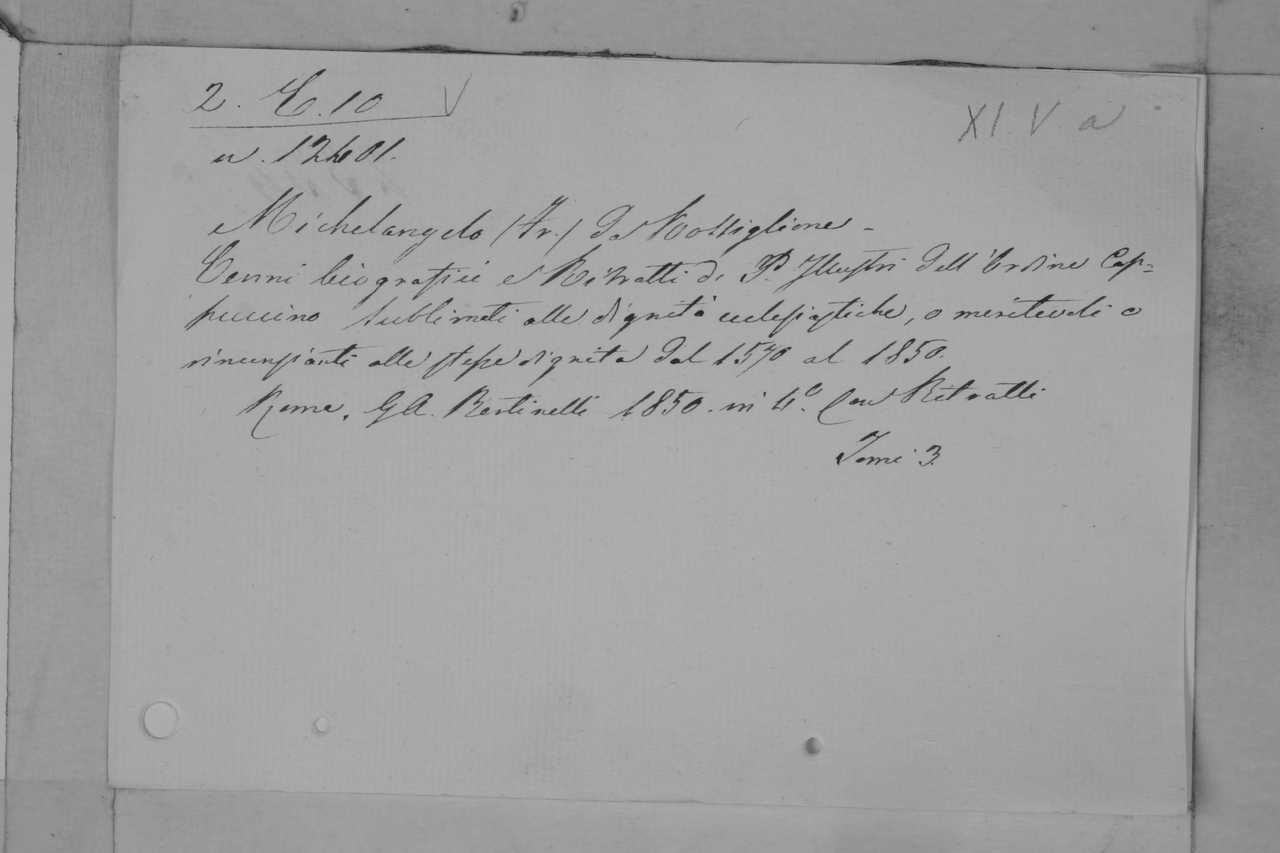 2. E. 10 V
XI V a
n. 12601.
Michelangelo (Fr.) da Rossiglione -
Cenni biografici e Ritratti di P. Illustri dell'Ordine Cap=
puccino sublimati alle dignità ecclesiastiche, o meritevoli o
rinunzianti alle stesse dignità dal 1570 al 1850.
Roma, G.A. Bertinelli 1850. in 4.º Con Ritratti
Tomi 3.